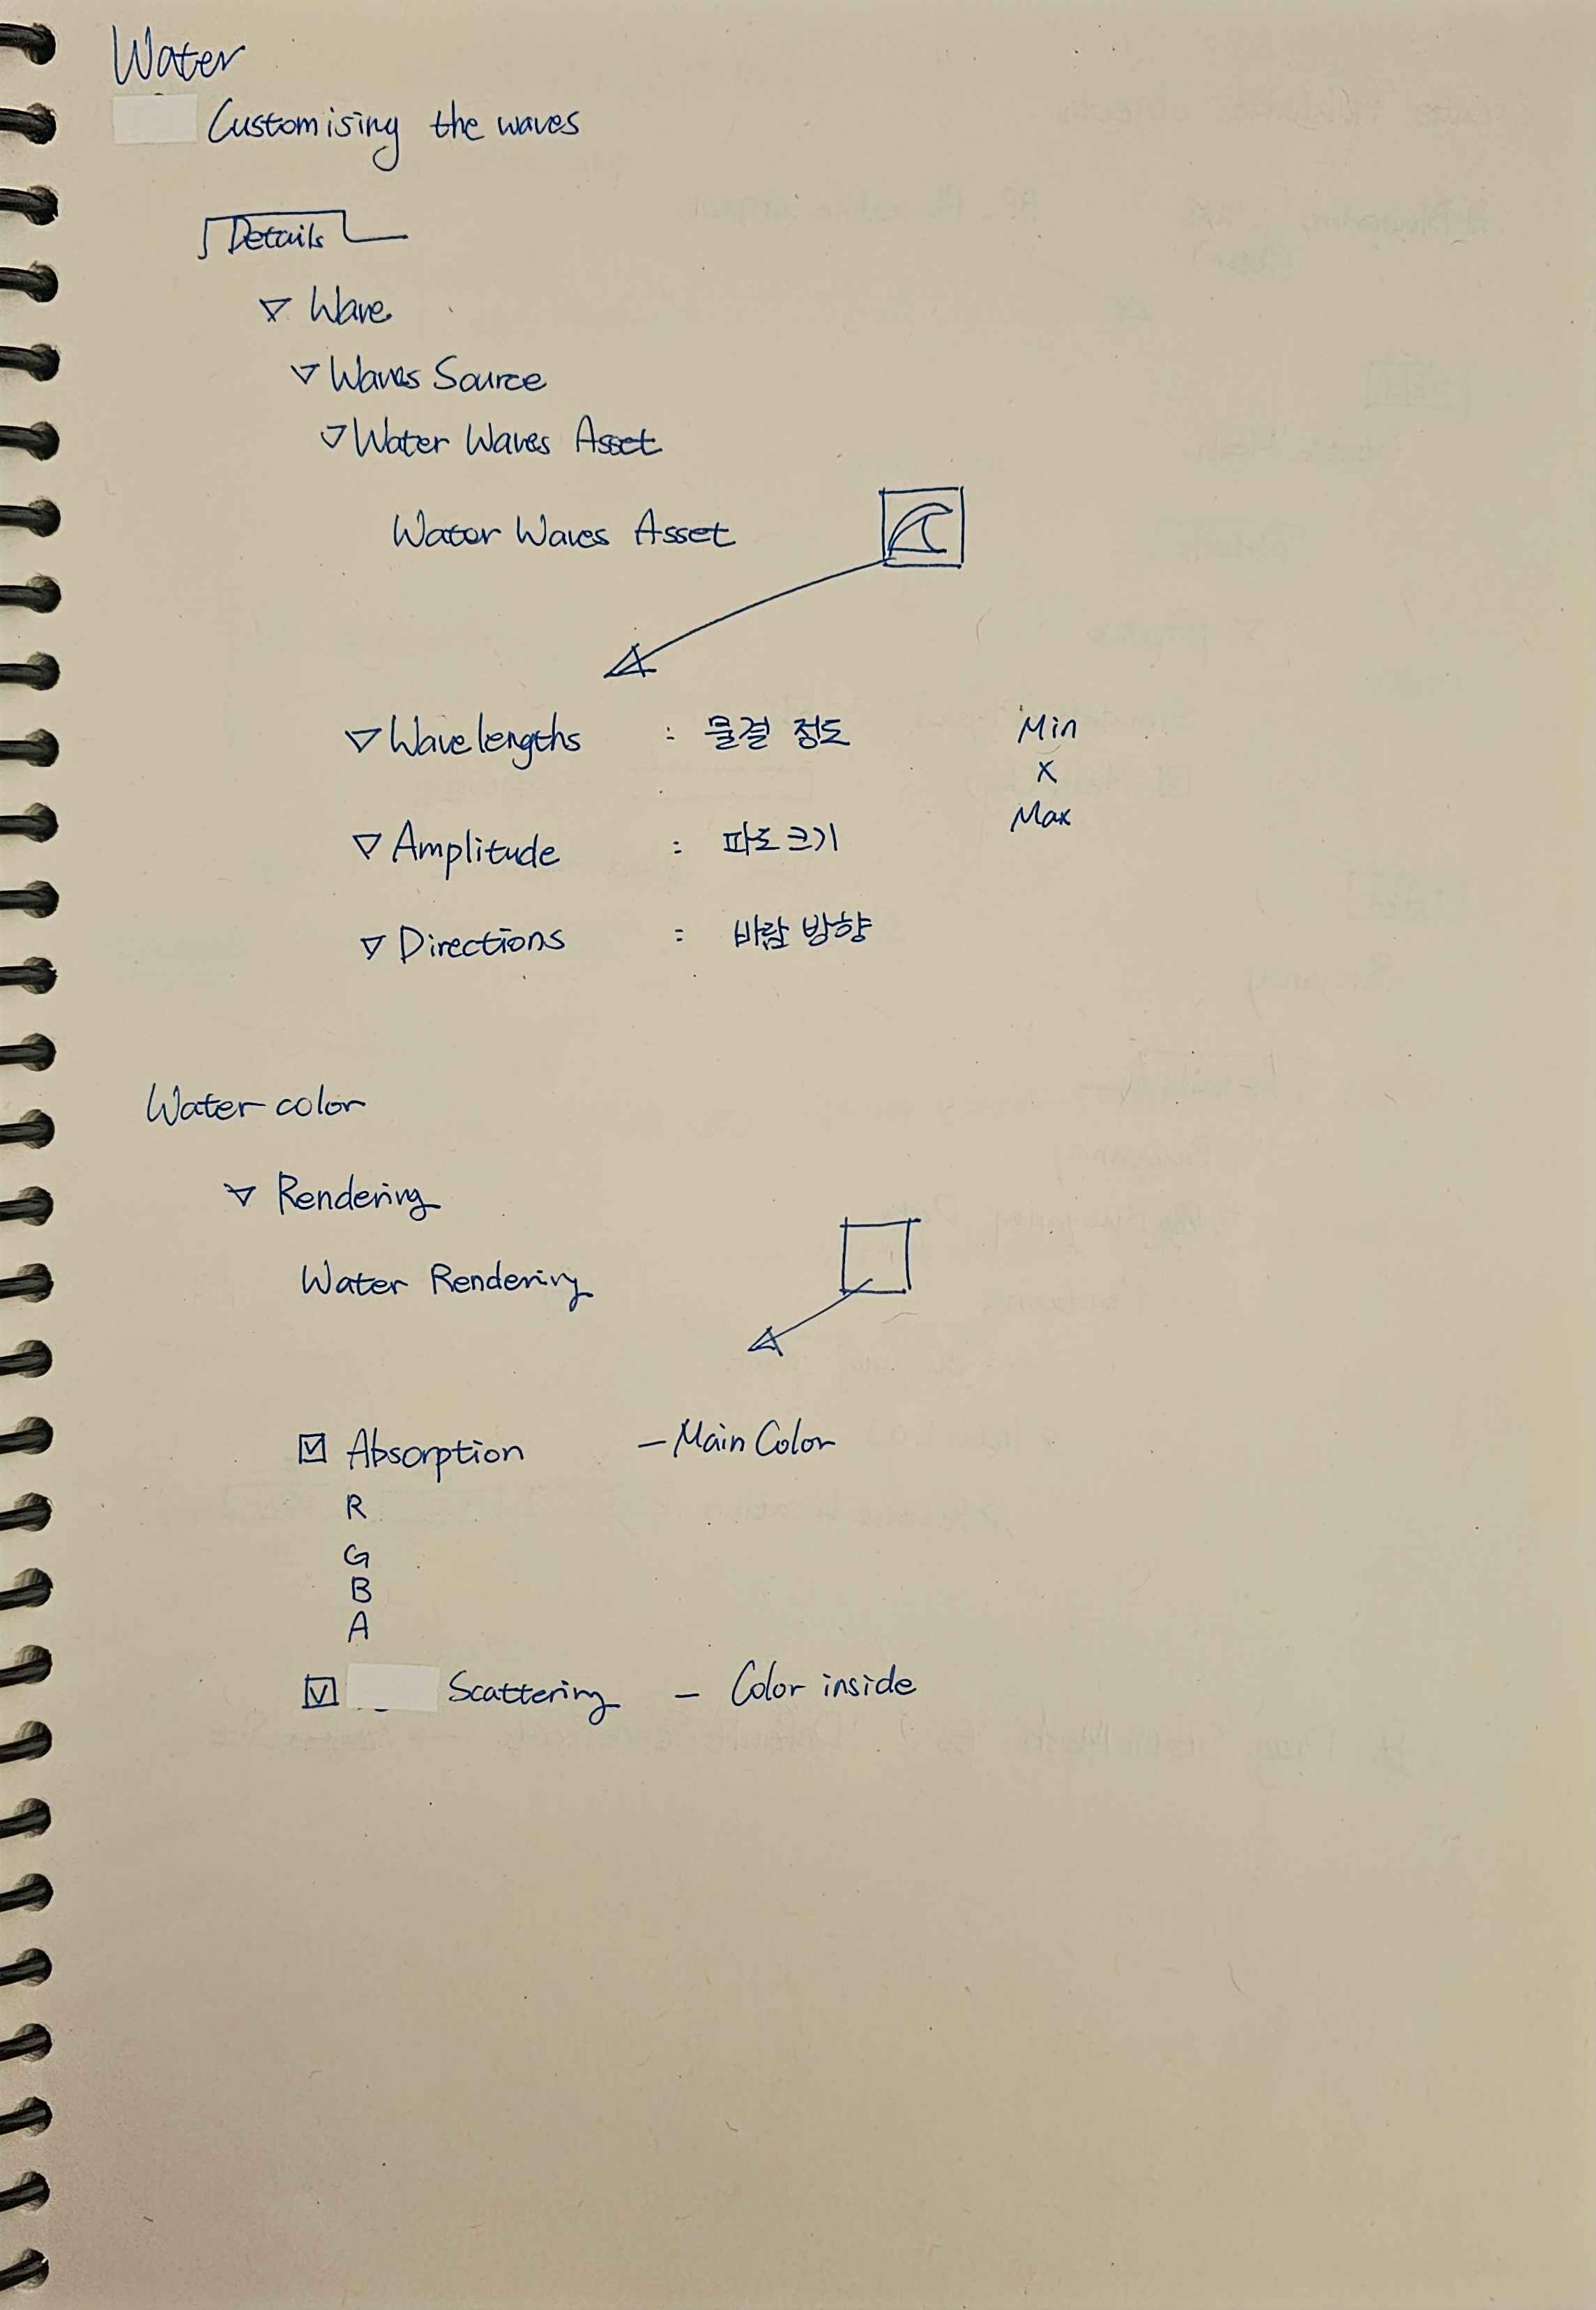 Water
Customising the waves
Details
▽ Wave
▽ Waves Source
▽ Water Waves Asset
Water Waves Asset
▽ Wavelengths : 물결 정도 Min
x
Max
▽ Amplitude : 파도 크기
▽ Directions : 바람 방향
Water color
▽ Rendering
Water Rendering
☑ Absorption - Main Color
R
G
B
A
☑ Scattering - Color inside